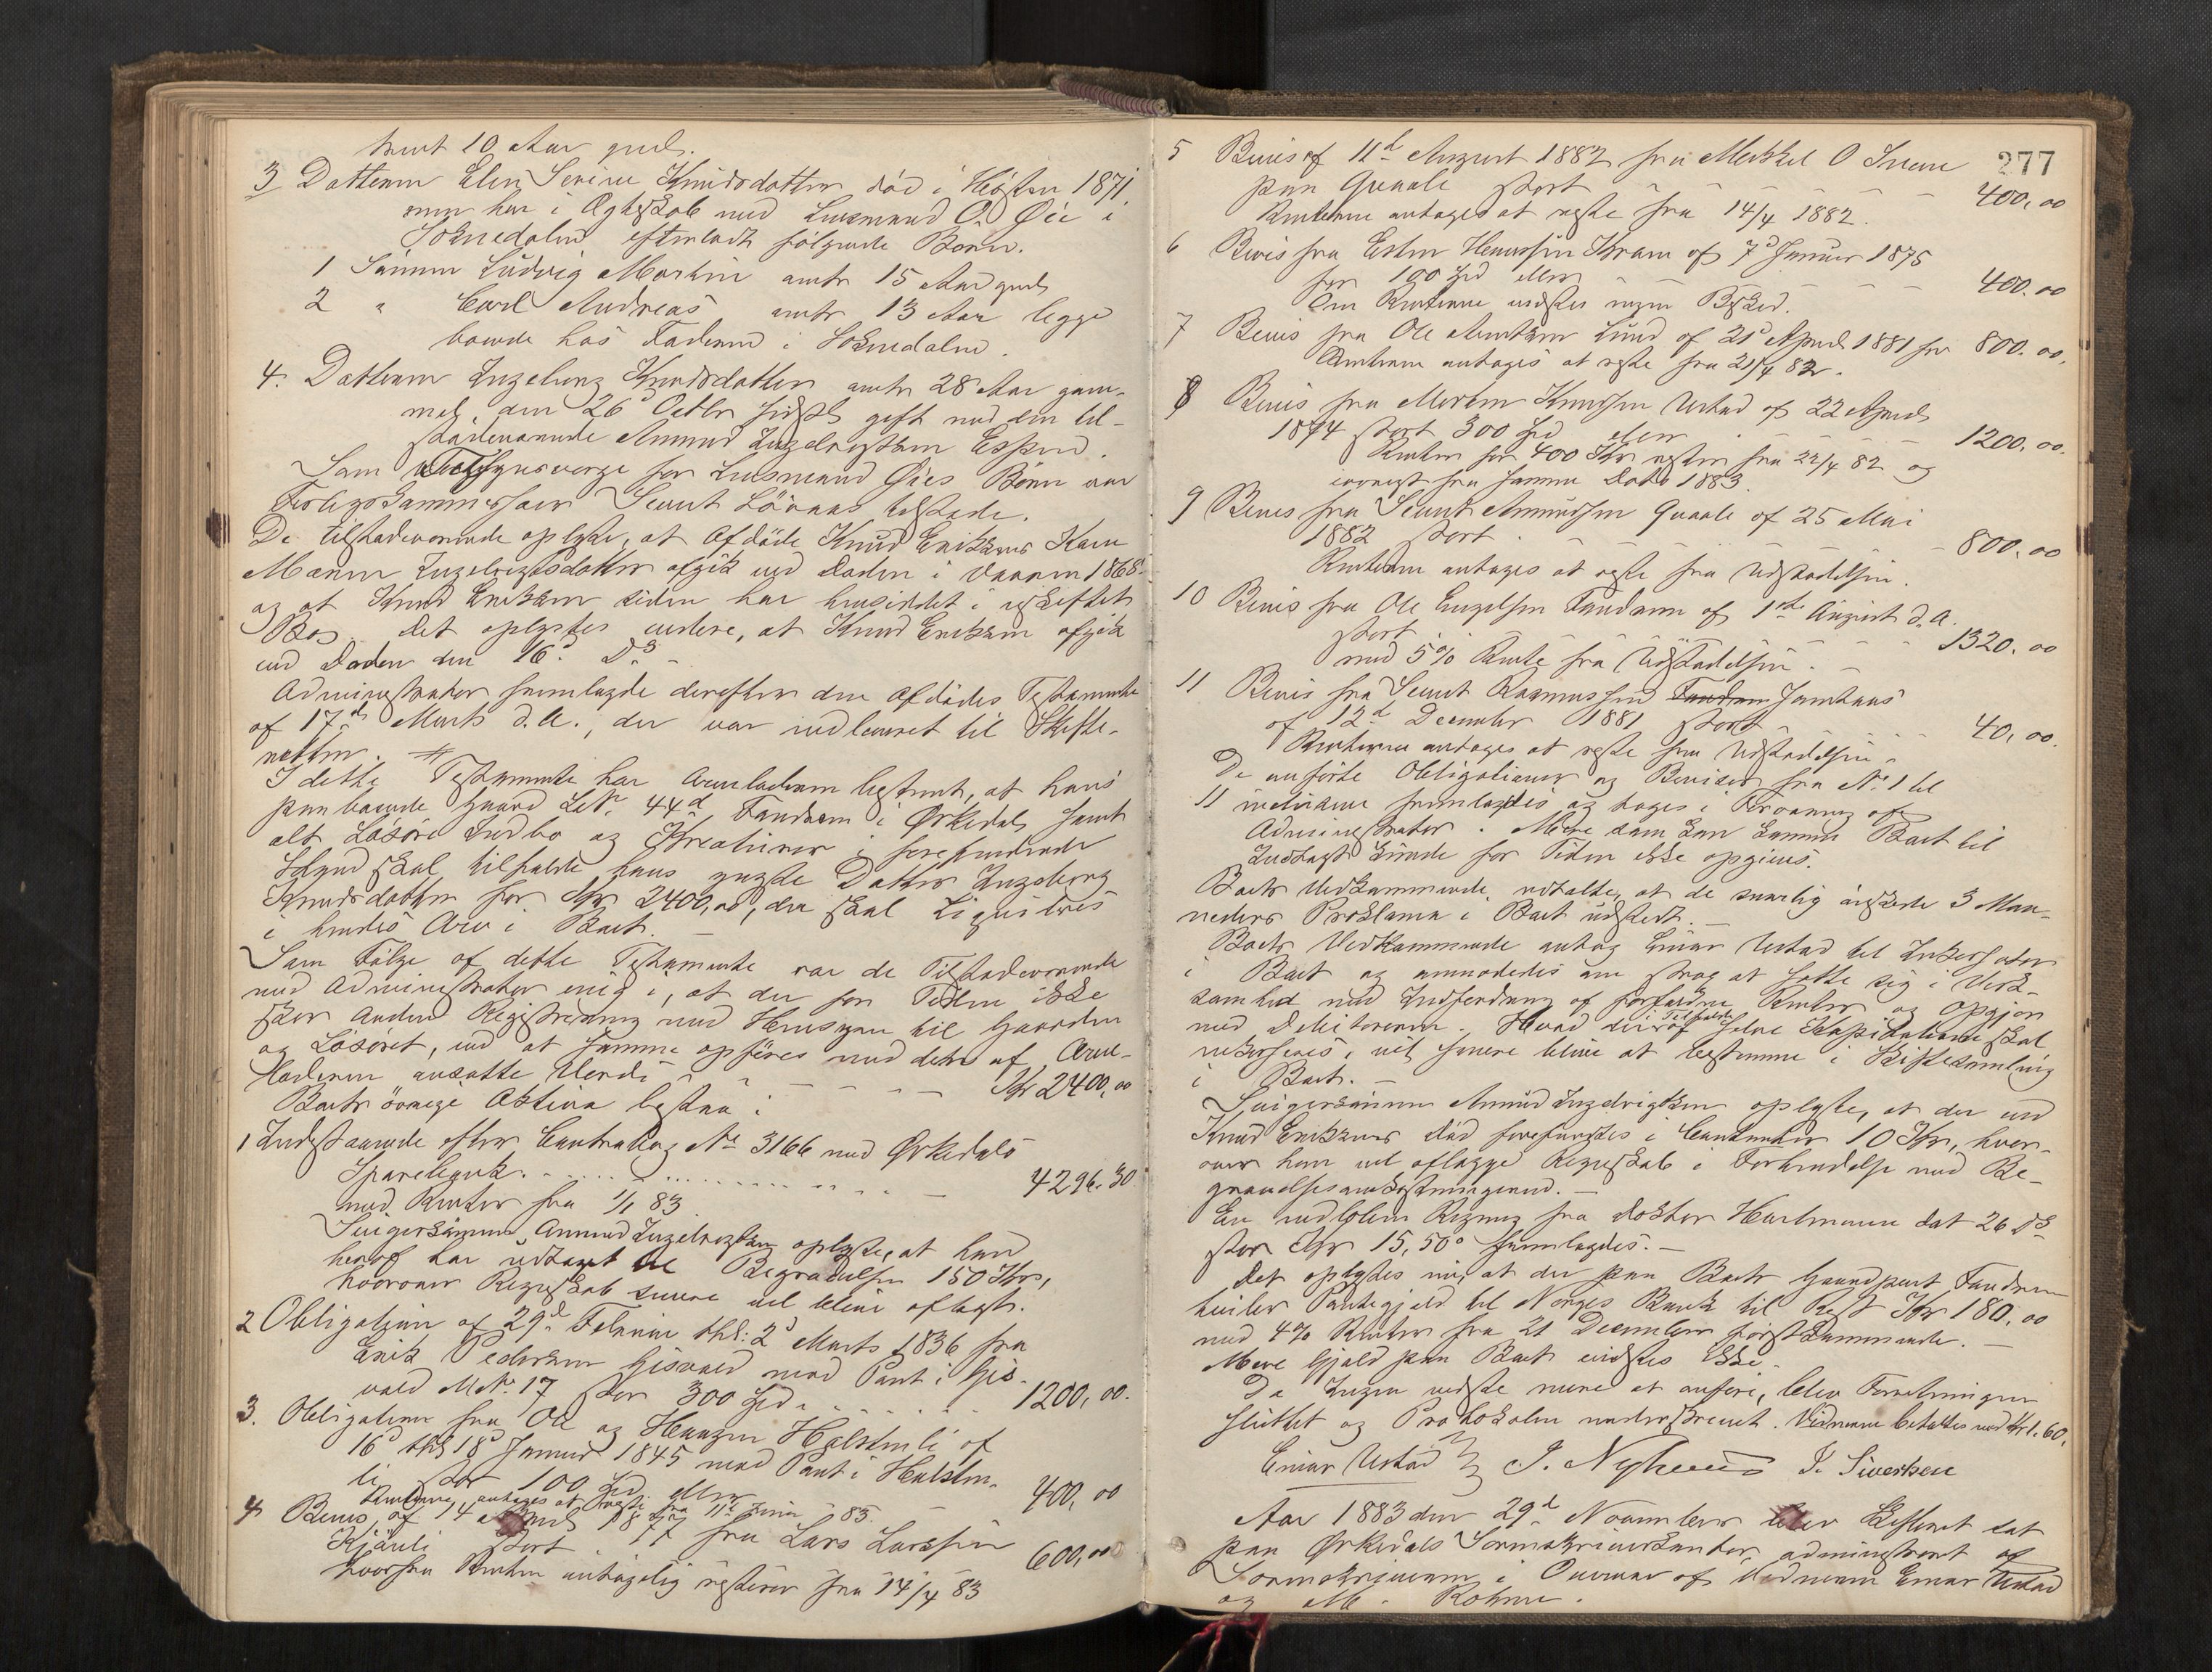 samt 10 Aar gml.
3 Datteren Elen Serine Knudsdatter død i Høsten 1871,
som har i Ægteskab med Lensmand O. Øie i
Soknedalen efterladt følgende Børn.
1 Sønnen Ludvig Martin antr 15 Aar gml
2 " Carl Andreas antr 13 Aar begge
boende hos Faderen i Soknedalen.
4. Datteren Ingeborg Knudsdatter antr 28 Aar gam-
mel, den 26d Octbr sidstl gift med den til-
stedeværende Amund Ingebrigtsen Espen.
Som Tilsynsværge for Lensmand Øies Børn var
Forligskommissair Sevnt tilstede.
De tilstedeværende oplyste, at Afdøde Knud Eriksens Kone
Maren Ingebrigtsdatter afgik ved Døden i Vaaren 1868
og at Knud Eriksen siden har hensiddet i uskiftet
Bo. Det oplystes videre, at Knud Eriksen afgik
ved Døden den 16d Ds.
Administrator fremlagde derefter den Afdødes Testamente
af 17d Marts d.A., der var indleveret til Skifte-
retten.
I dette Testamente har Arveladeren bestemt, at hans
paaboende Gaard LNr. 44d Fandrem i Ørkedal samt
alt Løsøre Indbo og Kreaturer i forefindende
Stand skal tilfalde hans yngste Datter Ingeborg
Knudsdatter for Kr 2400,00, der skal Ligvideres
i hendes Arv i Boet.
Som Følge af dette Testamente var de Tilstedeværende
med Administrator enig i, at der for Tiden ikke
skor Anden Registrering med Hensyn til Gaarden
og Løsøret, end at samme opføres med dets af Arve-
laderen ansatte Værdi Kr 2400,00
Boets øvrige Aktiva bestaa i:
1 Indestaaende efter Contrabog No 3166 med Ørkedals
Sparebank 4296.30
med Renter fra 1/1 83
Svigersønnen Amund Ingebrigtsen oplyste, at han
heraf har udtaget til Begravelsen 150 Kr,
hvorover Regnskab senere vil blive aflagt.
2 Obligation af 29d Februar thl: 2d Marts 1836 fra
Erik Pedersen Gisvold med Pant i Gis-
vold MNr. 17 stor 300 Spd. 1200,00.
3. Obligation fra Ole og Haagen Halstenli af
16d thl 18d Januar 1845 med Pant i Halsten-
li stor 100 Spd. eller 400,00
Renterne antages at reste fra 11te Juni 83.
4 Bevis af 14 April 1877 fra Lars Larssen
Kjørli stort 600,00
hvorfra Renten antagelig resterer fra 14/4 83
277
5 Bevis af 11d August 1882 fra Mekkel O Snove
paa Qvaale stort 400,00
Renterne antages at reste fra 14/4 1882.
6 Bevis fra Esten Henrssen Kram af 7d Januar 1875
for 100 Spd eller 400.00
Om Renterne vidstes ingen Besked.
7 Bevis fra Ole Arntsen Lund af 21d April 1881 for 800.00.
Renterne antages at reste fra 21/4 82.
8 Bevis fra Morten Knudsen Ustad af 22 April
1874 stort 300 Spd eller 1200,00.
Renter for 400 Kr rester fra 22/4 82 og
iøvrigt fra samme Dato 1883
9 Bevis fra Sevnt Amundsen Qvaale af 25 Mai
1882 stort 800,00
Renterne antages at reste fra Udstedelsen.
10 Bevis fra Ole Engelsen Fandrem af 1ste August d.A.
stort 1320.00
med 5% Rente fra Udstedelsen.
11 Bevis fra Sevnt Rasmussen Fandrem Jamtaas
af 12d December 1881 stort 40,00.
Renterne antages at reste fra Udstedelsen.
De anførte Obligationer og Beviser fra No 1 til
11 inclusive fremlagdes og toges i Forvaring af
Administrator. Mere som kan komme Boet til
Indtægt kunde for Tiden ikke opgives.
Boets Vedkommende udtalte, at de snarlig ønskede 3 Maa-
neders Proklama i Boet udstedt.
Boets Vedkommende antog Einar Ustad til Inkassator
i Boet og anmodedes om strax at sætte sig i Virk-
somhed med Indfordring af forfaldne Renter og Opgjør
med Debitorerne. Hvad der af selve Kapitalerne skal
inkasseres, vil senere blive at bestemme i Skiftesamling
i Boet.
Svigersønnen Amund Ingebrigtsen oplyste, at der ved
Knud Eriksens Død forefandtes i Contanter 10 Kr, hvor-
over han vil aflægge Regnskab i Forbindelse med Be-
gravelsesomkostningerne.
En indløben Regning fra Doktor Hartmann dat 26 Ds
stor Kr 15,50 fremlagdes.
Det oplystes nu, at der paa Boets Gaardpart Fandrem
hviler Pantegjæld til Norges Bank til Rest Kr 180,00
med 4% Renter fra 21 December førstkommende.
Mere Gjæld paa Boet vidstes ikke.
Da Ingen vidste mere at anføre, blev Forretningen
sluttet og Protokolen underskrevet. Vidnerne betaltes med Kr 1.60.
Einar Ustad J. Nyhuus I. Sivertsen
Aar 1883 den 29d November blev Skifteret sat
paa Ørkedals Sorenskriverkontor, administreret af
Sorenskriveren i Overvær af Vidnerne Einar Ustad
og M. Rohme.